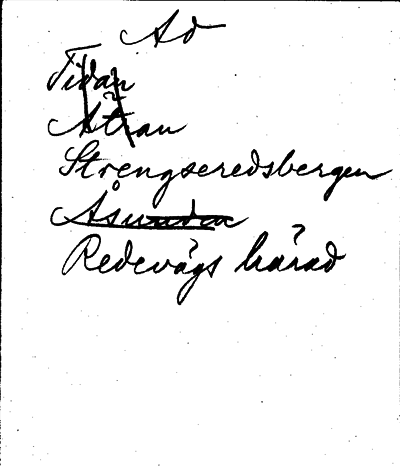 Ad
Tidan
Ätran
Strengseredsbergen
Åsunden
Redevägs härad